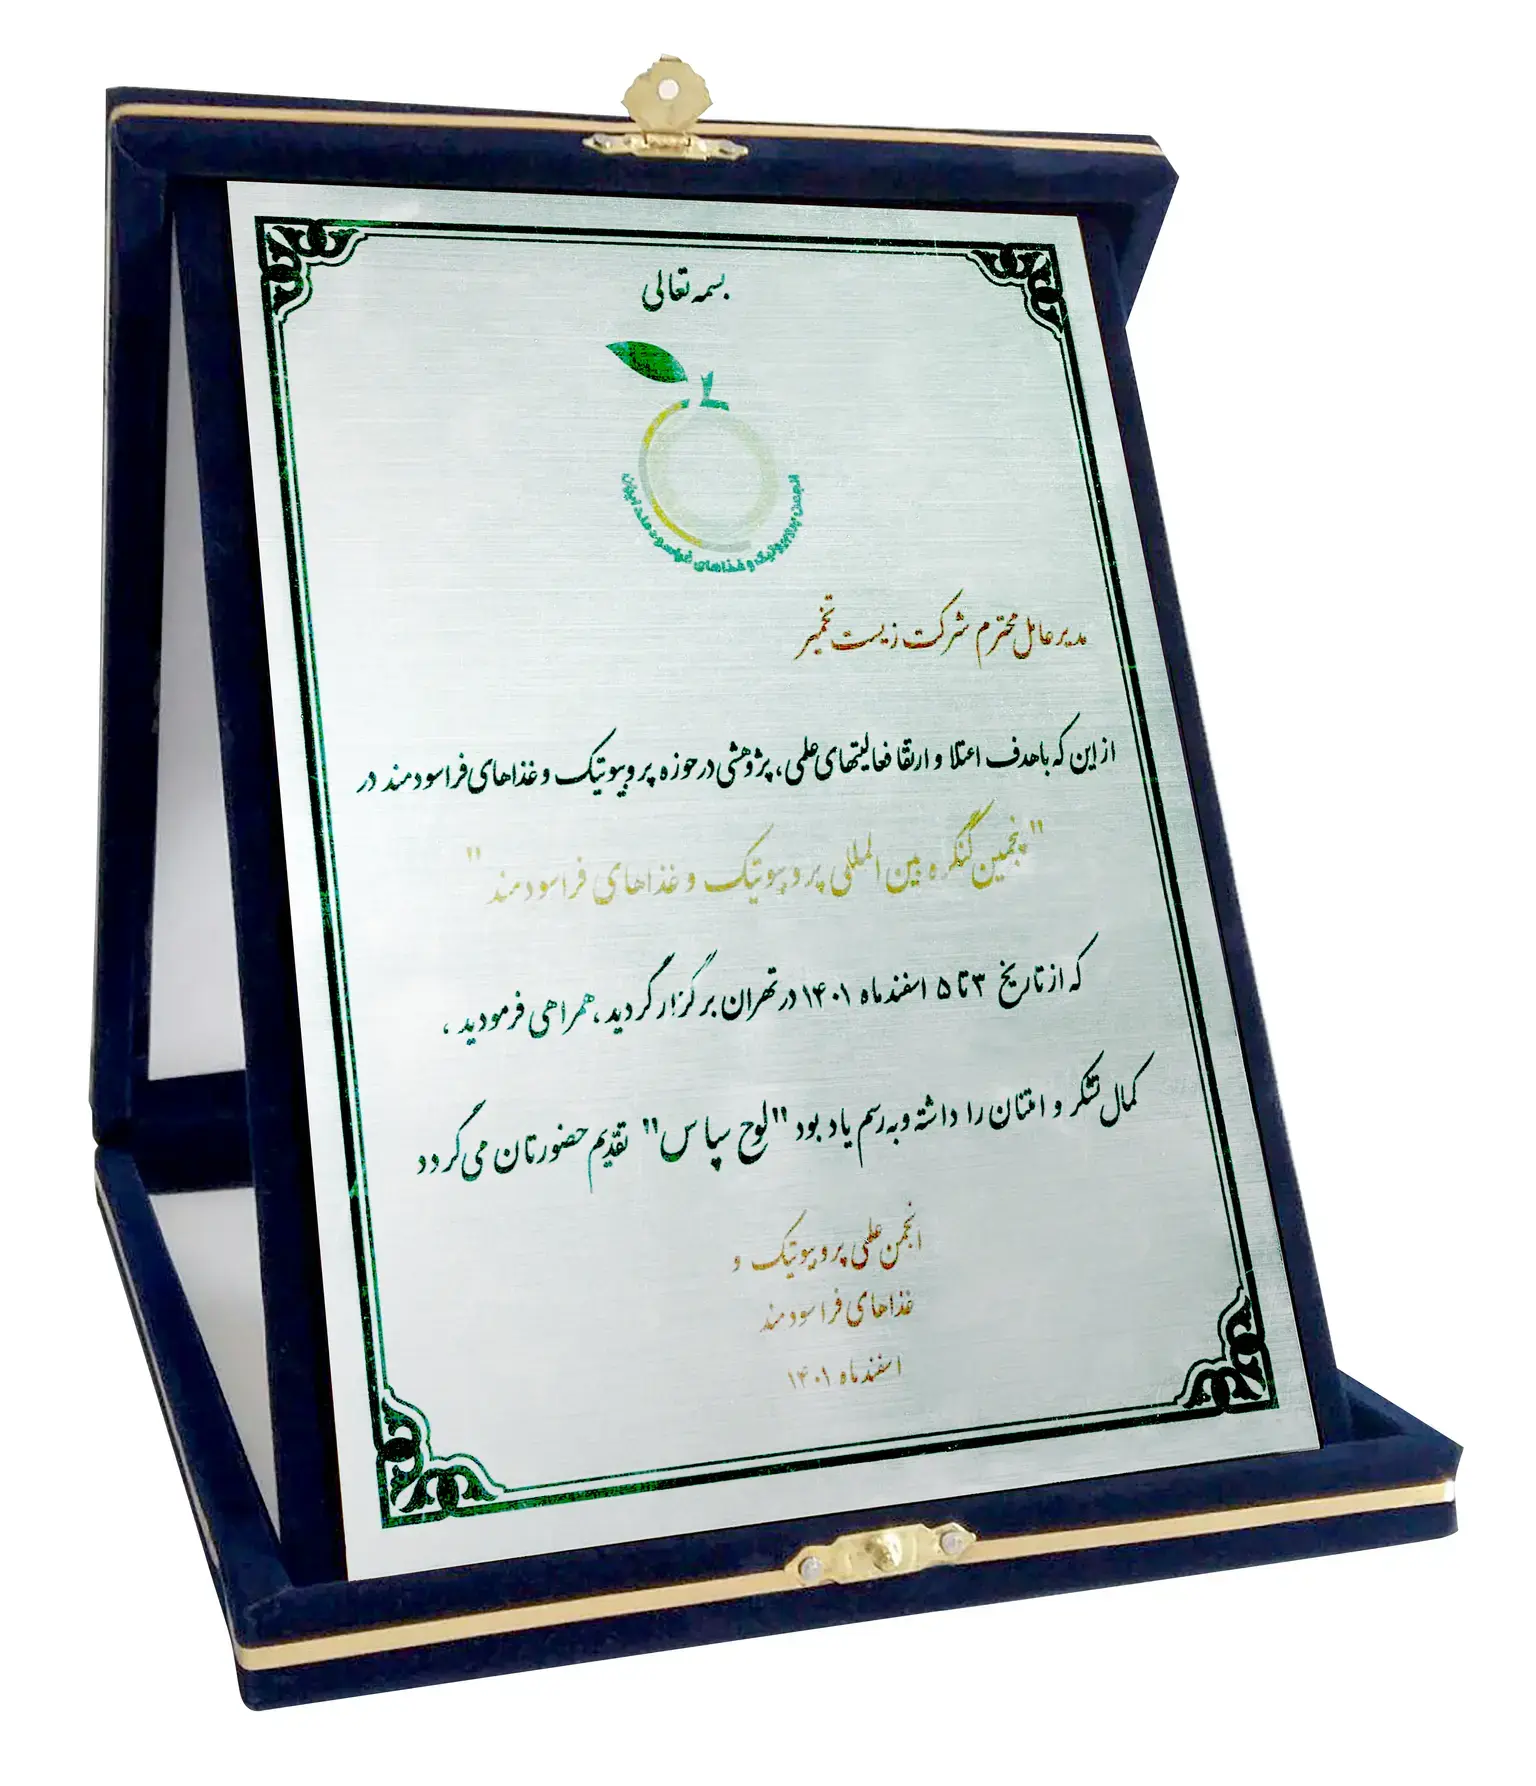 بسمه تعالی
انجمن پروبیوتیک و غذاهای فراسودمند ایران
مدیر عامل محترم شرکت زیست تخمیر
از این که با هدف اعتلا و ارتقا فعالیتهای علمی، پژوهشی در حوزه پروبیوتیک و غذاهای فراسودمند در
"پنجمین کنگره بین المللی پروبیوتیک و غذاهای فراسودمند"
که از تاریخ ۳ تا ۵ اسفند ماه ۱۴۰۱ در تهران برگزار گردید، همراهی فرمودید،
کمال تشکر و امتنان را داشته و به رسم یادبود "لوح سپاس" تقدیم حضورتان می گردد
انجمن علمی پروبیوتیک و
غذاهای فراسودمند
اسفند ماه ۱۴۰۱